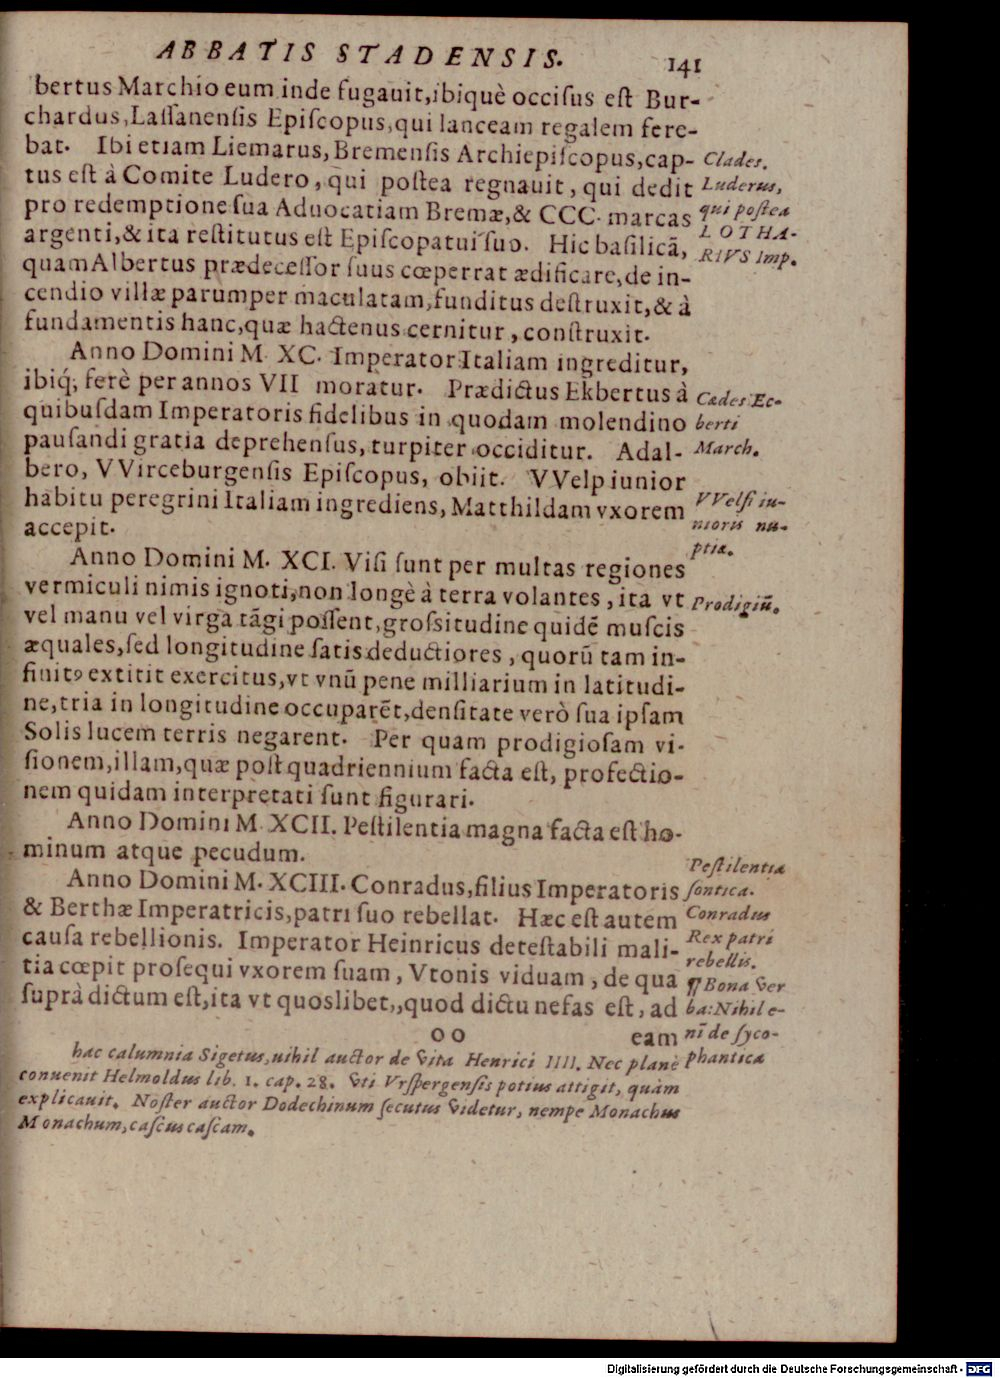 ABBATIS STADENSIS. 141
bertus Marchio eum inde fugauit, ibiquè occiſus eſt Bur-
chardus, Laſſanenſis Epiſcopus, qui lanceam regalem fere-
bat. Ibi etiam Liemarus, Bremenſis Archiepiſcopus, cap-
tus eſt à Comite Ludero, qui poſtea regnauit, qui dedit
pro redemptione ſua Aduocatiam Bremæ, & CCC. marcas
argenti, & ita reſtitutus eſt Epiſcopatui ſuo. Hic baſilicã,
quam Albertus prædeceſſor ſuus cœperrat ædificare, de in-
cendio villæ parumper maculatam, funditus deſtruxit, & à
fundamentis hanc, quæ hactenus cernitur, conſtruxit.
Clades.
Luderus,
qui poſtea
LOTHA-
RIVS Imp.
Anno Domini M. XC. Imperator Italiam ingreditur,
ibiq́; ferè per annos VII moratur. Prædictus Ekbertus à
quibuſdam Imperatoris fidelibus in quodam molendino
pauſandi gratia deprehenſus, turpiter occiditur. Adal-
bero, VVirceburgenſis Epiſcopus, obiit. VVelp iunior
habitu peregrini Italiam ingrediens, Matthildam vxorem
accepit.
Cædes Ec-
berti
March.
VVelfi iu-
nioris nu-
ptiæ.
Anno Domini M. XCI. Viſi ſunt per multas regiones
vermiculi nimis ignoti, non longè à terra volantes, ita vt
vel manu vel virga tãgi poſſent, groſsitudine quidẽ muſcis
æquales, ſed longitudine ſatis deductiores, quorũ tam in-
finitꝰ extitit exercitus, vt vnũ pene milliarium in latitudi-
ne, tria in longitudine occuparẽt, denſitate verò ſua ipſam
Solis lucem terris negarent. Per quam prodigioſam vi-
ſionem, illam, quæ poſt quadriennium facta eſt, profectio-
nem quidam interpretati ſunt figurari.
Prodigiũ.
Anno Domini M. XCII. Peſtilentia magna facta eſt ho-
minum atque pecudum.
Anno Domini M. XCIII. Conradus, filius Imperatoris
& Berthæ Imperatricis, patri ſuo rebellat. Hæc eſt autem
cauſa rebellionis. Imperator Heinricus deteſtabili mali-
tia cœpit proſequi vxorem ſuam, Vtonis viduam, de qua
ſuprà dictum eſt, ita vt quoslibet,, quod dictu nefas eſt, ad
OO eam
Peſtilentia
ſontica.
Conradus
Rex patri
rebellis.
¶ Bona Ver
ba: Nihil e-
nĩ de ſyco-
phantica
hac calumnia Sigetus, uihil auctor de Vita Henrici IIII. Nec planè
conuenit Helmoldus lib. 1. cap. 28. Vti Vrſpergenſis potius attigit, quàm
explicauit. Noſter auctor Dodechinum ſecutus Videtur, nempe Monachus
Monachum, caſcus caſcam.
Digitalisierung gefördert durch die Deutsche Forschungsgemeinschaft - DFG